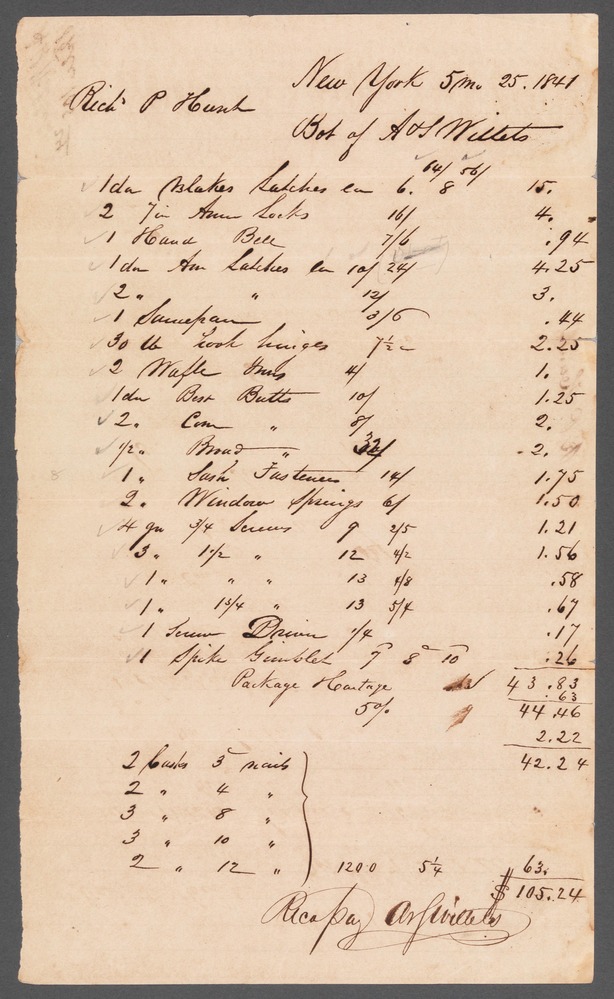 New York 5 mo. 25. 1841
Richd P Hunt
Bot of A & S Willets
64/ 56/
1 dn Blakes Latches ea 6. 8 15.
2 7 in Amn Locks 16/ 4.
1 Hand Bell 7/6 .94
1 dn Am Latches ea 10/ 24/ 4.25
2 " " 12/ 3.
1 Saucepan 3/6 .44
30 lb hook hinges 7½ c 2.25
2 Wafle Irons 4/ 1.
1 dn Best Butts 10/ 1.25
2 " Com " 8/ 2.
1/2 " Broad " 32/ 2.
1 " Sash Fasteners 14/ 1.75
2 " Window Springs 6/ 1.50
4 gn 3/4 Screws 9 2/5 1.21
3 " 1 1/2 " 12 4/2 1.56
1 " " " 13 4/8 .58
1 " 1 3/4 " 13 5/4 .67
1 Screw Driver 1/4 .17
1 Spike Gimblet 9 8 10 .26
43.83
Package Cartage .63
44.46
5% 2.22
42.24
2 Casks 3d nails
2 " 4 "
3 " 8 "
3 " 10 "
2 " 12 " 1200 5¼ 63.
$ 105.24
Rec pay A & S Willets